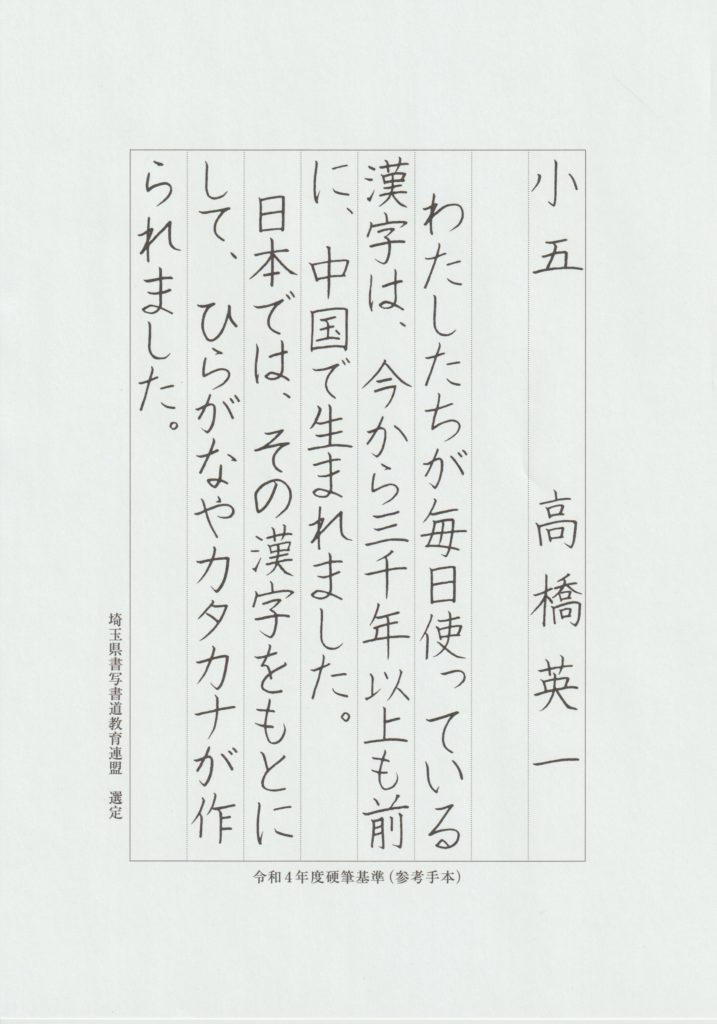 小五 高橋英一
わたしたちが毎日使っている
漢字は、今から三千年以上も前
に、中国で生まれました。
日本では、その漢字をもとに
して、ひらがなやカタカナが作
られました。
埼玉県書写書道教育連盟 選定
令和4年度硬筆基準(参考手本)